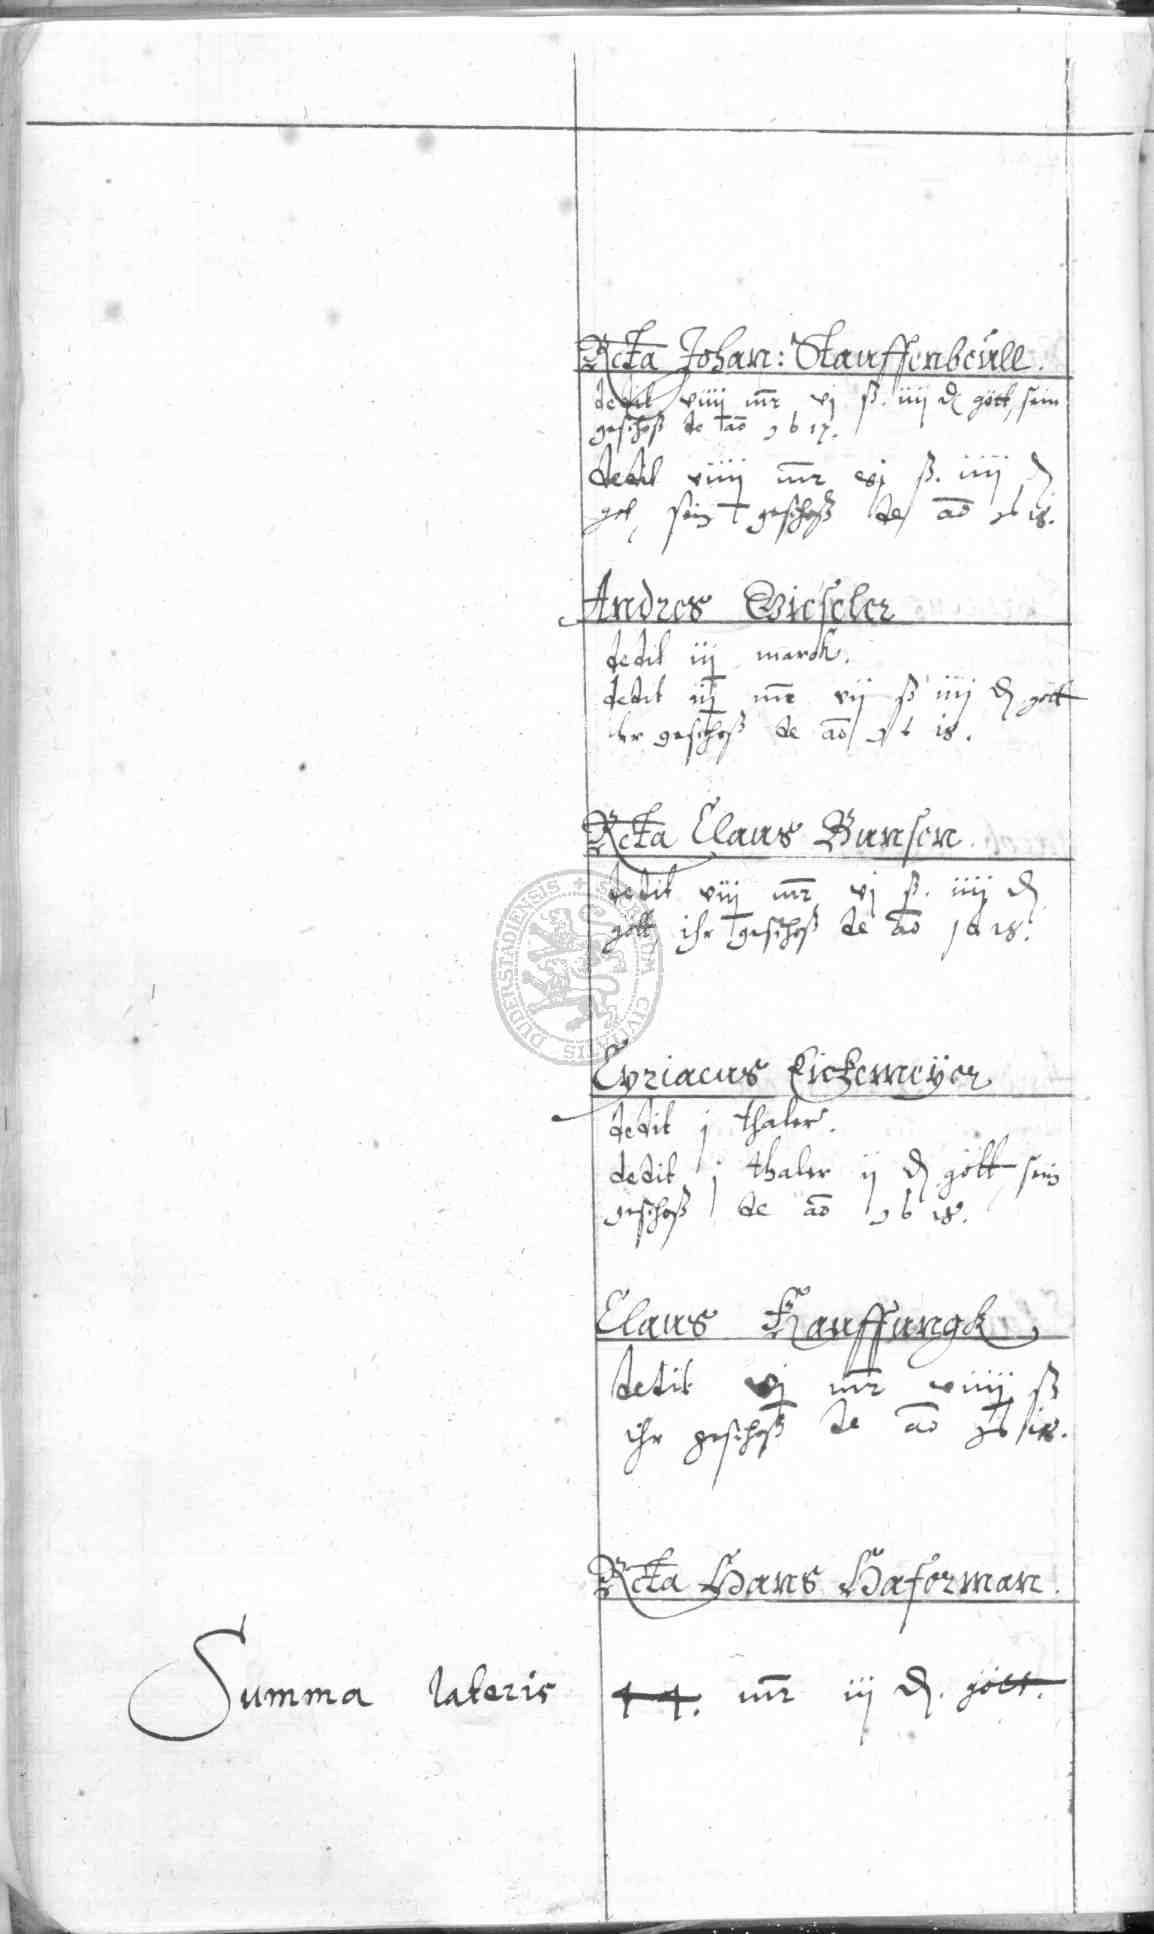 Rcta Johan: Stauffenbeüll.
dedit viiij mr vj ß. iiij d gött, sein
geschoß de ao 1617.
dedit viiij mr vj ß. iiij d
gott, sein geschoß de ao 1618.
Andres Wieseler
dedit iij marck.
dedit iij mr vij ß iiij d gött
ihr geschoß de ao 1618.
Rcta Claus Bunsen.
dedit viij mr vj ß. iiij d
gött ihr geschoß de ao 1618.
SIGILLUM CIVITATIS DUDERSTADIENSIS
Cyriacus Eickemeÿer
dedit j thaler.
dedit j thaler ij d gött, sein
geschoß de ao 1618.
Claus Kauffungk
dedit vj mr viiij ß
ihr geschoß de ao 1618.
Rcta Hans Haforman.
Summa lateris 44. mr iij d. gött.